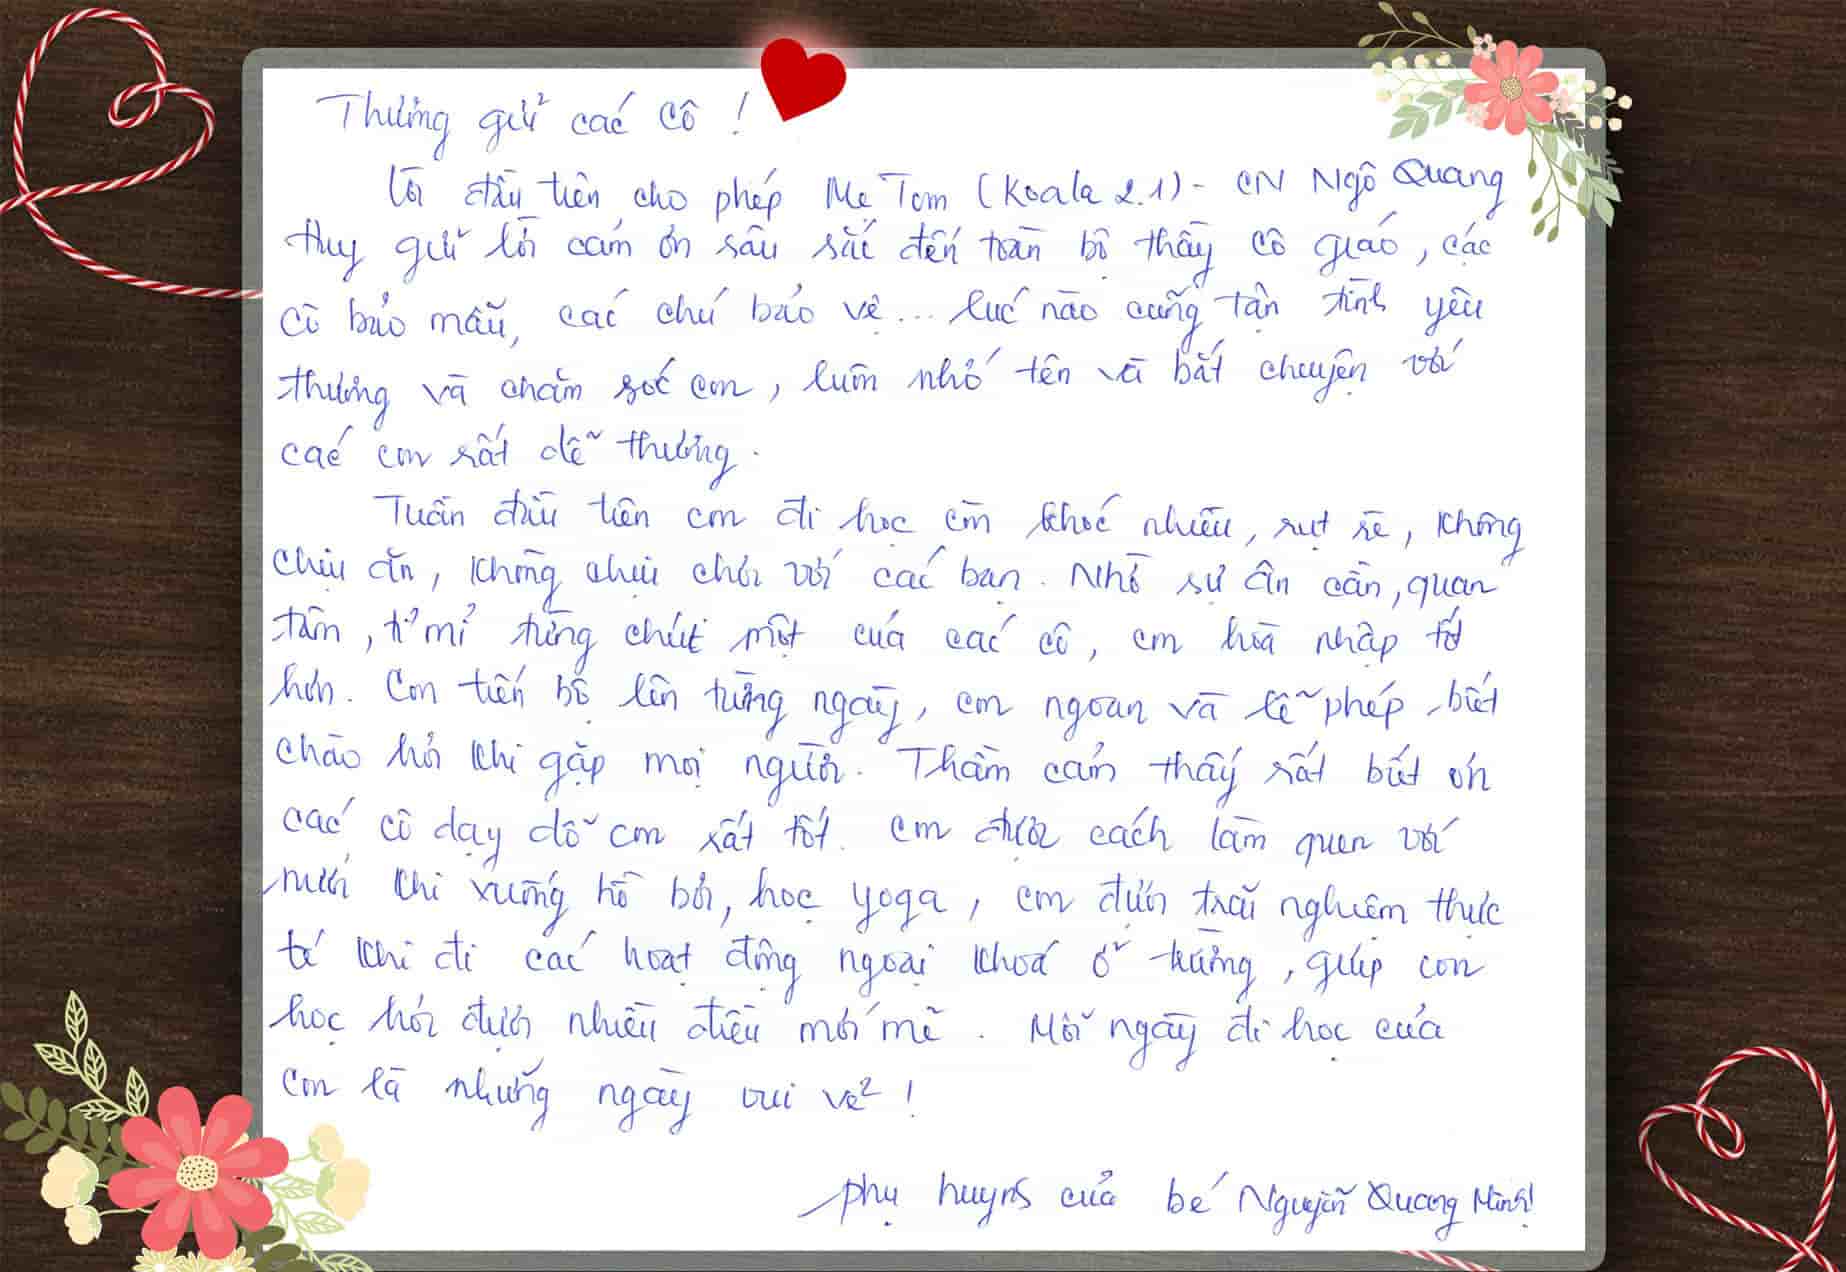 Thương gửi các cô !
Lời đầu tiên cho phép Mẹ Tom (Koala 2.1) - CN Ngô Quang
Huy gửi lời cảm ơn sâu sắc đến toàn bộ thầy cô giáo, các
cô bảo mẫu, các chú bảo vệ... lúc nào cũng tận tình yêu
thương và chăm sóc con, luôn nhớ tên và bắt chuyện với
các con rất dễ thương.
Tuần đầu tiên con đi học còn khóc nhiều, rụt rè, không
chịu ăn, không chịu chơi với các bạn. Nhờ sự ân cần, quan
tâm, tỉ mỉ từng chút một của các cô, con hoà nhập tốt
hơn. Con tiến bộ lên từng ngày, con ngoan và lễ phép biết
chào hỏi khi gặp mọi người. Thầm cảm thấy rất biết ơn
các cô dạy dỗ con rất tốt. Con được cách làm quen với
nước khi xuống hồ bơi, học yoga, con được trãi nghiệm thực
tế khi đi các hoạt động ngoại khoá ở trường, giúp con
học hỏi được nhiều điều mới mẽ. Mỗi ngày đi học của
con là những ngày vui vẻ !
Phụ huynh của bé Nguyễn Quang Minh!